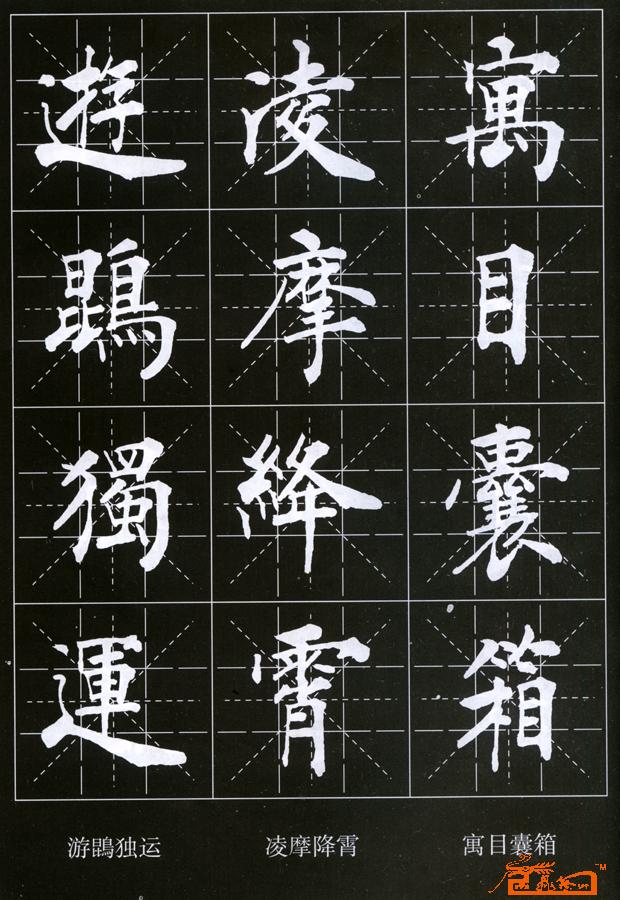 寓目囊箱
凌摩絳霄
遊鵾獨運
寓目囊箱
凌摩降霄
游鹍独运